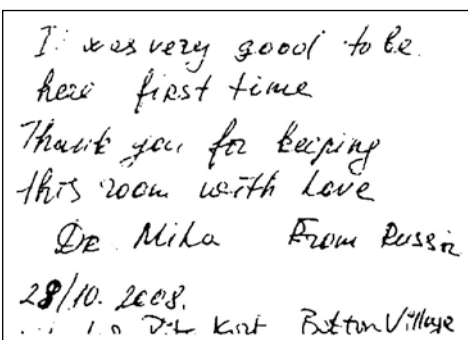 I was very good to be
here first time
Thank you for keeping
this room with Love
DR Mila From Russia
28/10.2008.
Kirt Botton Village